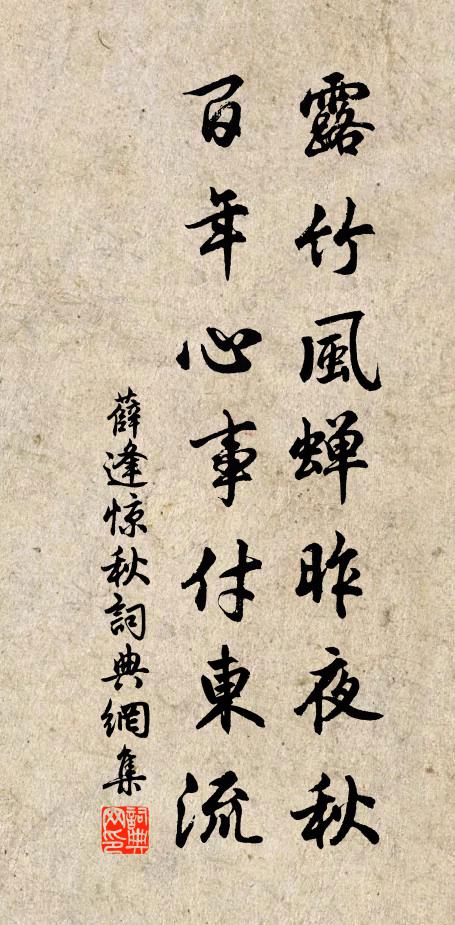 露竹風蟬昨夜秋
百年心事付東流
薛逢惊秋詞典網集
詞典
网印